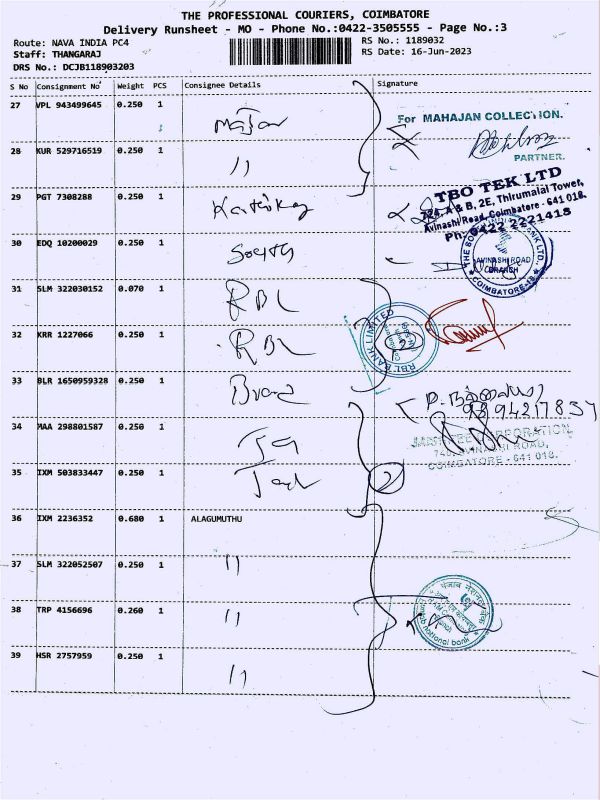 THE PROFESSIONAL COURIERS, COIMBATORE
Delivery Runsheet - MO - Phone No.:0422-3505555 - Page No.:3
Route: NAVA INDIA PC4 RS No.: 1189032
Staff: THANGARAJ RS Date: 16-Jun-2023
DRS No.: DCJB118903203
S No Consignment No Weight PCS Consignee Details Signature
27 VPL 943499645 0.250 1
For MAHAJAN COLLECTION.
PARTNER.
28 KUR 529716519 0.250 1 11
29 PGT 7308288 0.250 1
TBO TEK LTD
724, A & B, 2E, Thirumalai Tower,
Avinashi Road, Coimbatore - 641 018.
Ph: 0422 2221418
30 EDQ 10200029 0.250 1 South
AVINASHI ROAD
BRANCH
COIMBATORE-18
31 SLM 322030152 0.070 1 RBL
RBL BANK LIMITED
32 KRR 1227066 0.250 1 RBL
2
33 BLR 1650959328 0.250 1
34 MAA 298801587 0.250 1
CORPORATION
AVINASHI ROAD,
COIMBATORE - 641 018.
35 IXM 503833447 0.250 1
2
36 IXM 2236352 0.680 1 ALAGUMUTHU
37 SLM 322052507 0.250 1 11
38 TRP 4156696 0.260 1 11
पंजाब नैशनल बैंक
national bank
39 HSR 2757959 0.250 1 11